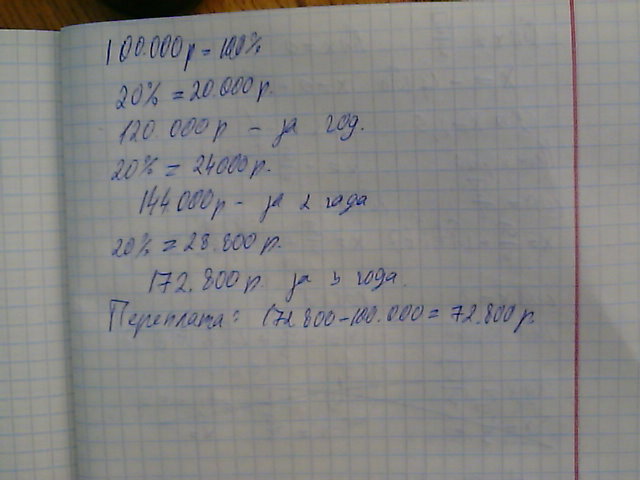 100.000р = 100%
20% = 20.000р.
120.000р - за год.
20% = 24000р.
144.000р - за 2 года
20% = 28.800р.
172.800р. за 3 года.
Переплата: 172.800-100.000 = 72.800р.